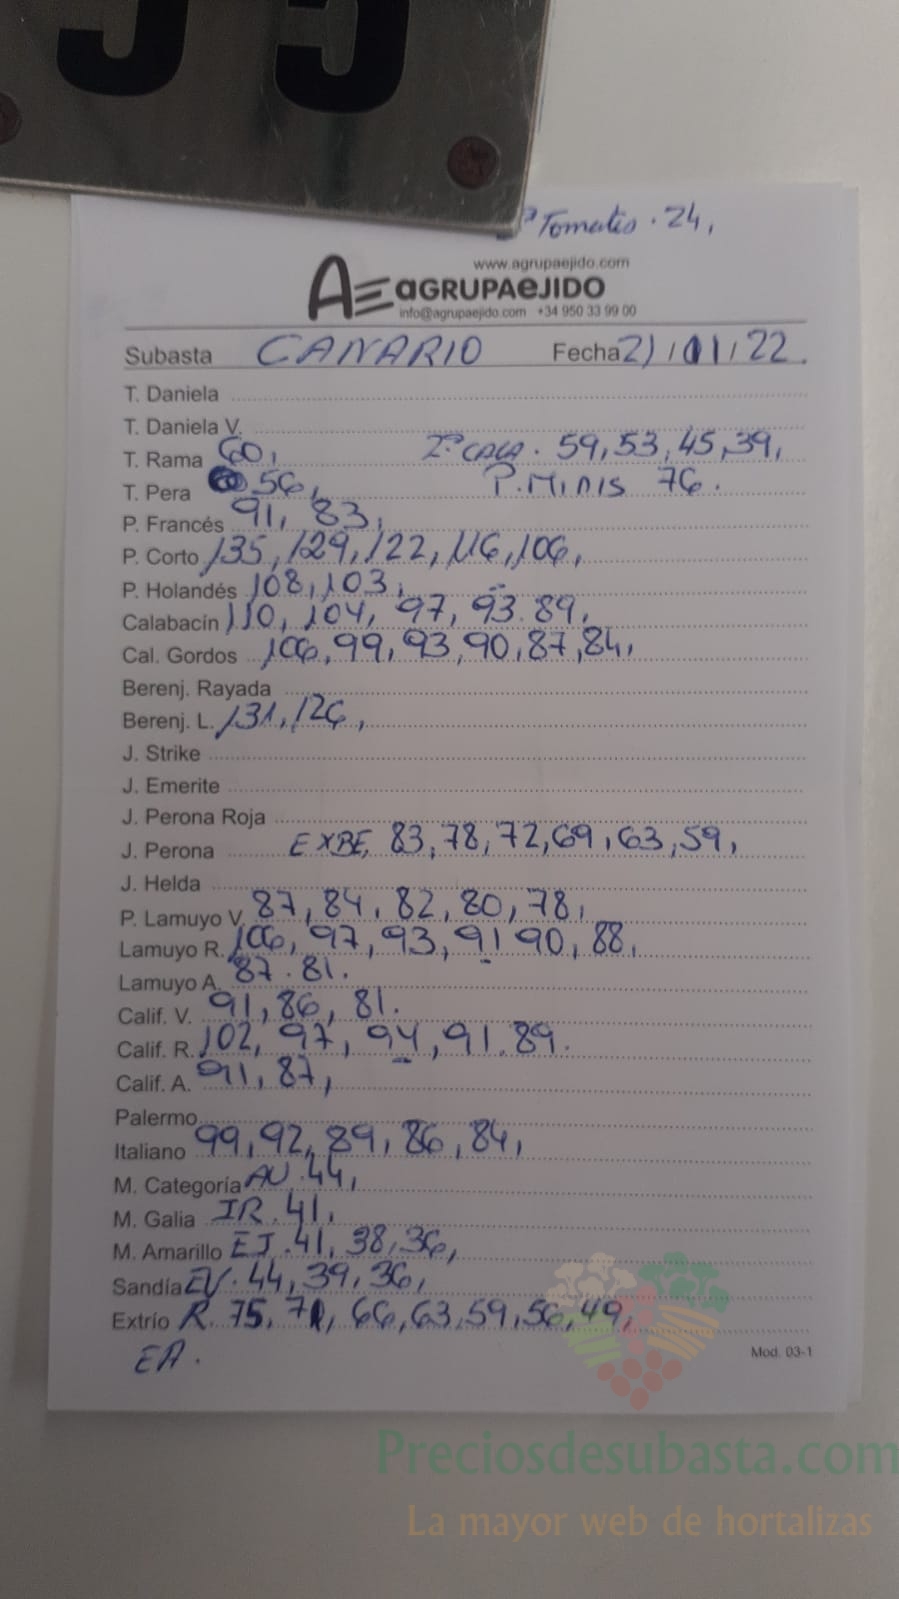 55
Tomates . 24,
www.agrupaejido.com
AGRUPAEJIDO
info@agrupaejido.com +34 950 33 99 00
Subasta CANARIO Fecha 21/01/22.
T. Daniela
T. Daniela V.
T. Rama 60, 2ª CALA. 59, 53, 45, 39,
T. Pera 56, P. MINIS 76.
P. Francés 91, 83,
P. Corto 135, 129, 122, 116, 106,
P. Holandés 108, 103,
Calabacín 110, 104, 97, 93. 89,
Cal. Gordos 106, 99, 93, 90, 87, 84,
Berenj. Rayada
Berenj. L. 131, 126,
J. Strike
J. Emerite
J. Perona Roja
J. Perona EXBE, 83, 78, 72, 69, 63, 59,
J. Helda
P. Lamuyo V. 87, 84, 82, 80, 78,
Lamuyo R. 106, 97, 93, 91 90, 88,
Lamuyo A. 87. 81.
Calif. V. 91, 86, 81.
Calif. R. 102, 97, 94, 91. 89.
Calif. A. 91, 87,
Palermo
Italiano 99, 92, 89, 86, 84,
M. Categoría AU. 44,
M. Galia IR. 41,
M. Amarillo EJ. 41, 38, 36,
Sandía EV. 44, 39, 36,
Extrío R. 75, 71, 66, 63, 59, 56, 49,
EA.
Mod. 03-1
Preciosdesubasta.com
La mayor web de hortalizas